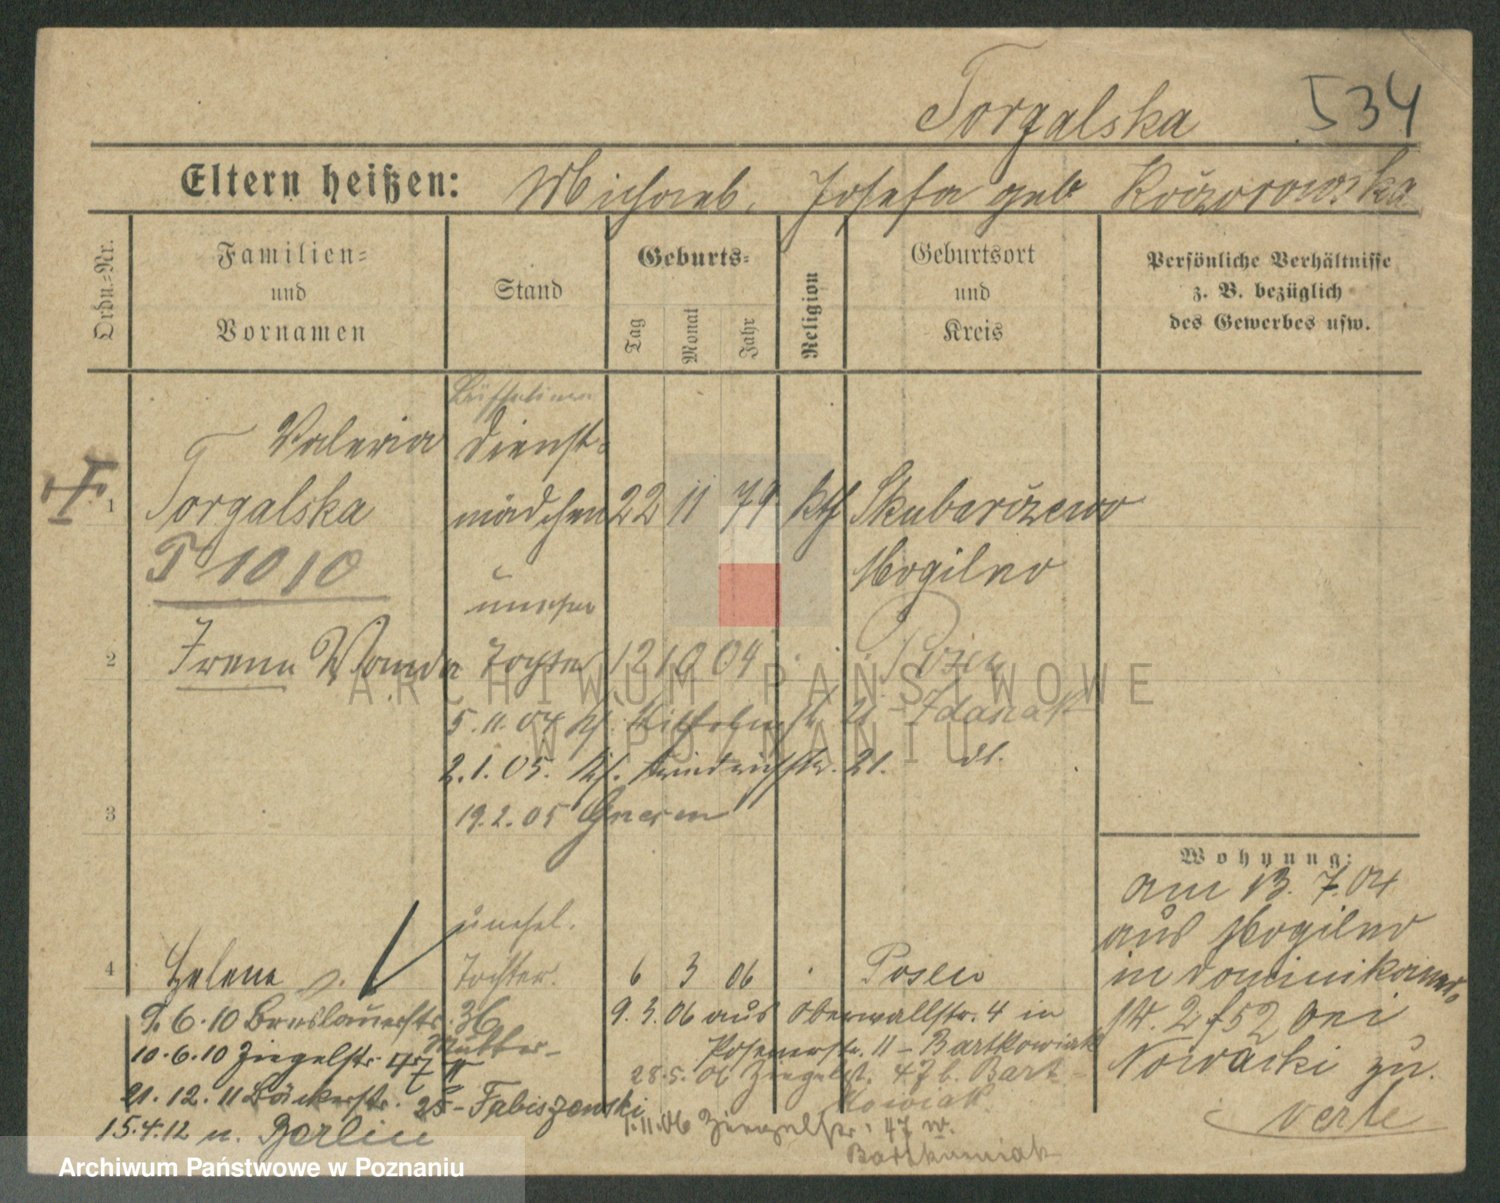 Torgalska 534
Eltern heißen: Michael, Josefa geb
Ordn.-Nr.
Familien- und Vornamen
Stand
Geburts-
Tag
Monat
Jahr
Religion
Geburtsort und Kreis
Persönliche Verhältnisse
z. B. bezüglich
des Gewerbes usw.
Valeria Dienst-
1 Torgalska mädchen 22 11 79 kth Skubarczewo
T 1010 Mogilno
unehel
2 Irena Wanda Tochter 12 10 04 Posen
5.11.04 Wilhelmstr. 21
2.1.05. Friedrichstr. 21.
3 19.2.05 Gnesen
Wohnung:
am 13.7.04
aus Mogilno
in Dominikaner-
str. 2 bei
Nowacki zu.
verte
unehel.
4 Helena Tochter. 6 3 06 Posen
9.6.10 Breslauerstr. 36
9.3.06 aus Oberwallstr. 4 in
Posenerstr. 11 - Bartkowiak
10.6.10 Ziegelstr. 47 Mutter
28.5.06 Ziegelst. 47 b. Bart-
kowiak
21.12.11 Bäckerstr. 25 - Fabiszewski
1.11.06 Ziegelstr. 47 w.
Bartkowiak
15.4.12 n. Berlin
ARCHIWUM PAŃSTWOWE
W POZNANIU
Archiwum Państwowe w Poznaniu